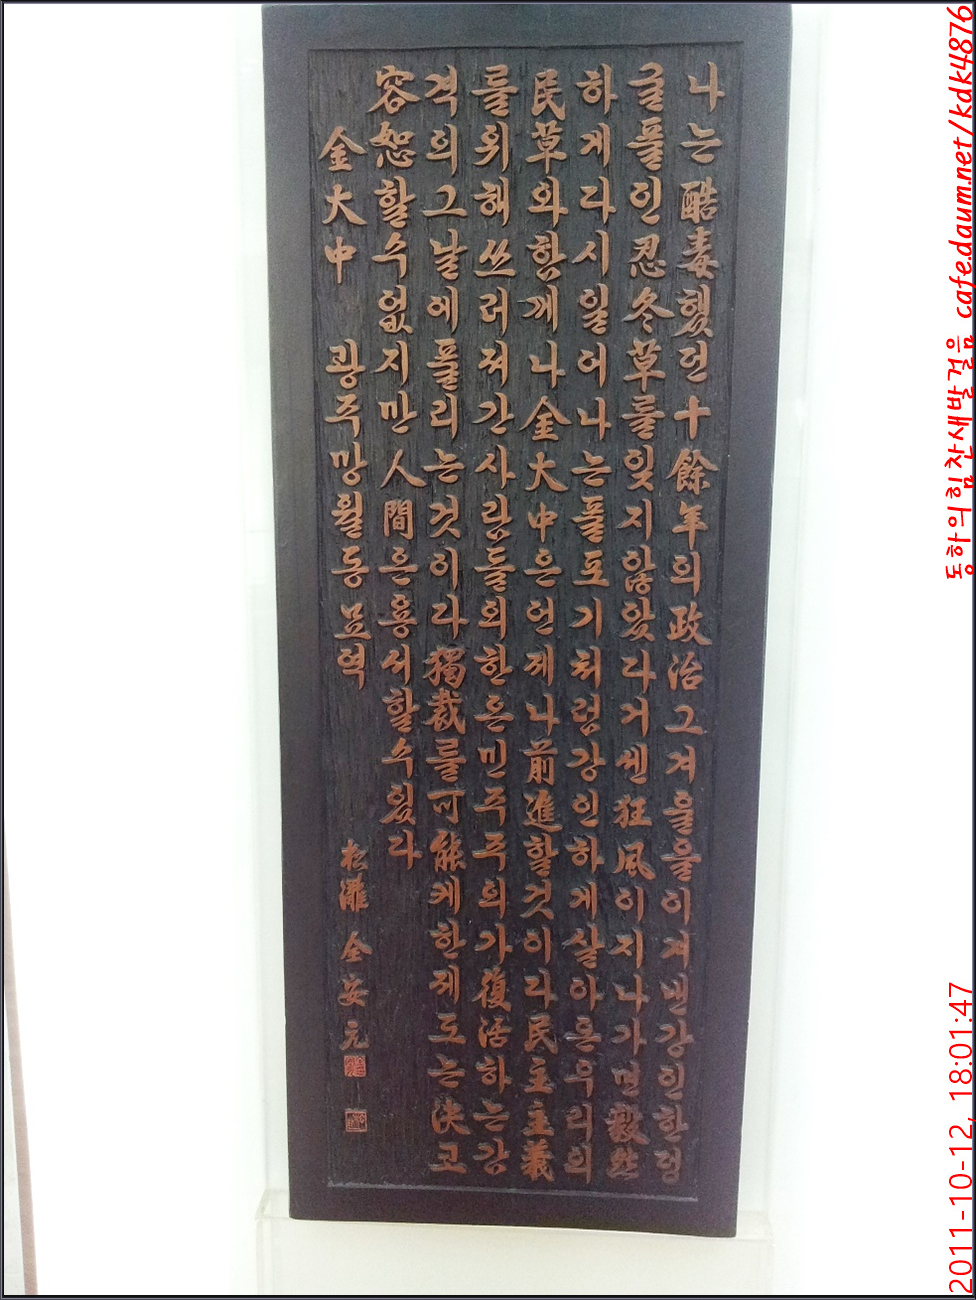 나는酷毒했던十餘年의政治그겨울을이겨낸강인한정
글풀인忍冬草를잊지않았다거센狂風이지나가면毅然
하게다시일어나는풀포기처럼강인하게살아온우리의
民草와함께나金大中은언제나前進할것이라民主主義
를위해쓰러져간사람들의한은민주주의가復活하는감
격의그날에풀리는것이다獨裁를可能케한제도는決코
容恕할수없지만人間은용서할수있다
金大中 광주망월동묘역
松灘 全安元
동하의힘찬새발걸음 cafe.daum.net/kdk4876
2011-10-12, 18:01:47